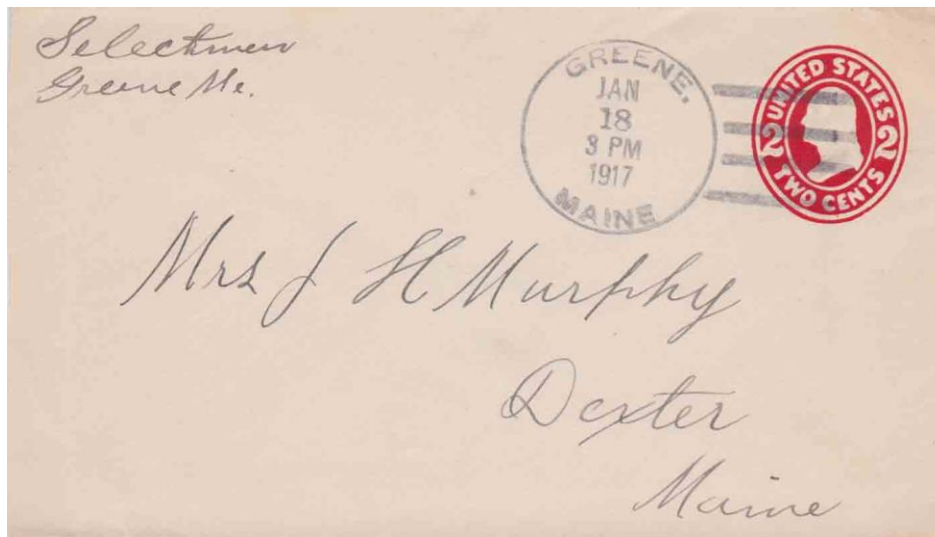 Selectmen
Greene Me.
GREENE.
JAN
18
3 PM
1917
MAINE
UNITED STATES
2 2
TWO CENTS
Mrs J H Murphy
Dexter
Maine